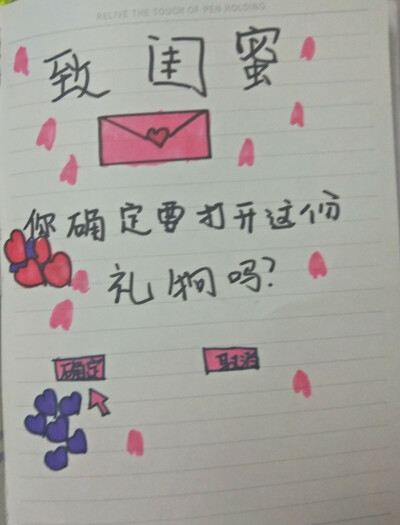 RELIVE THE TOUCH OF PEN HOLDING
致闺蜜
你确定要打开这份
礼物吗?
确定 取消